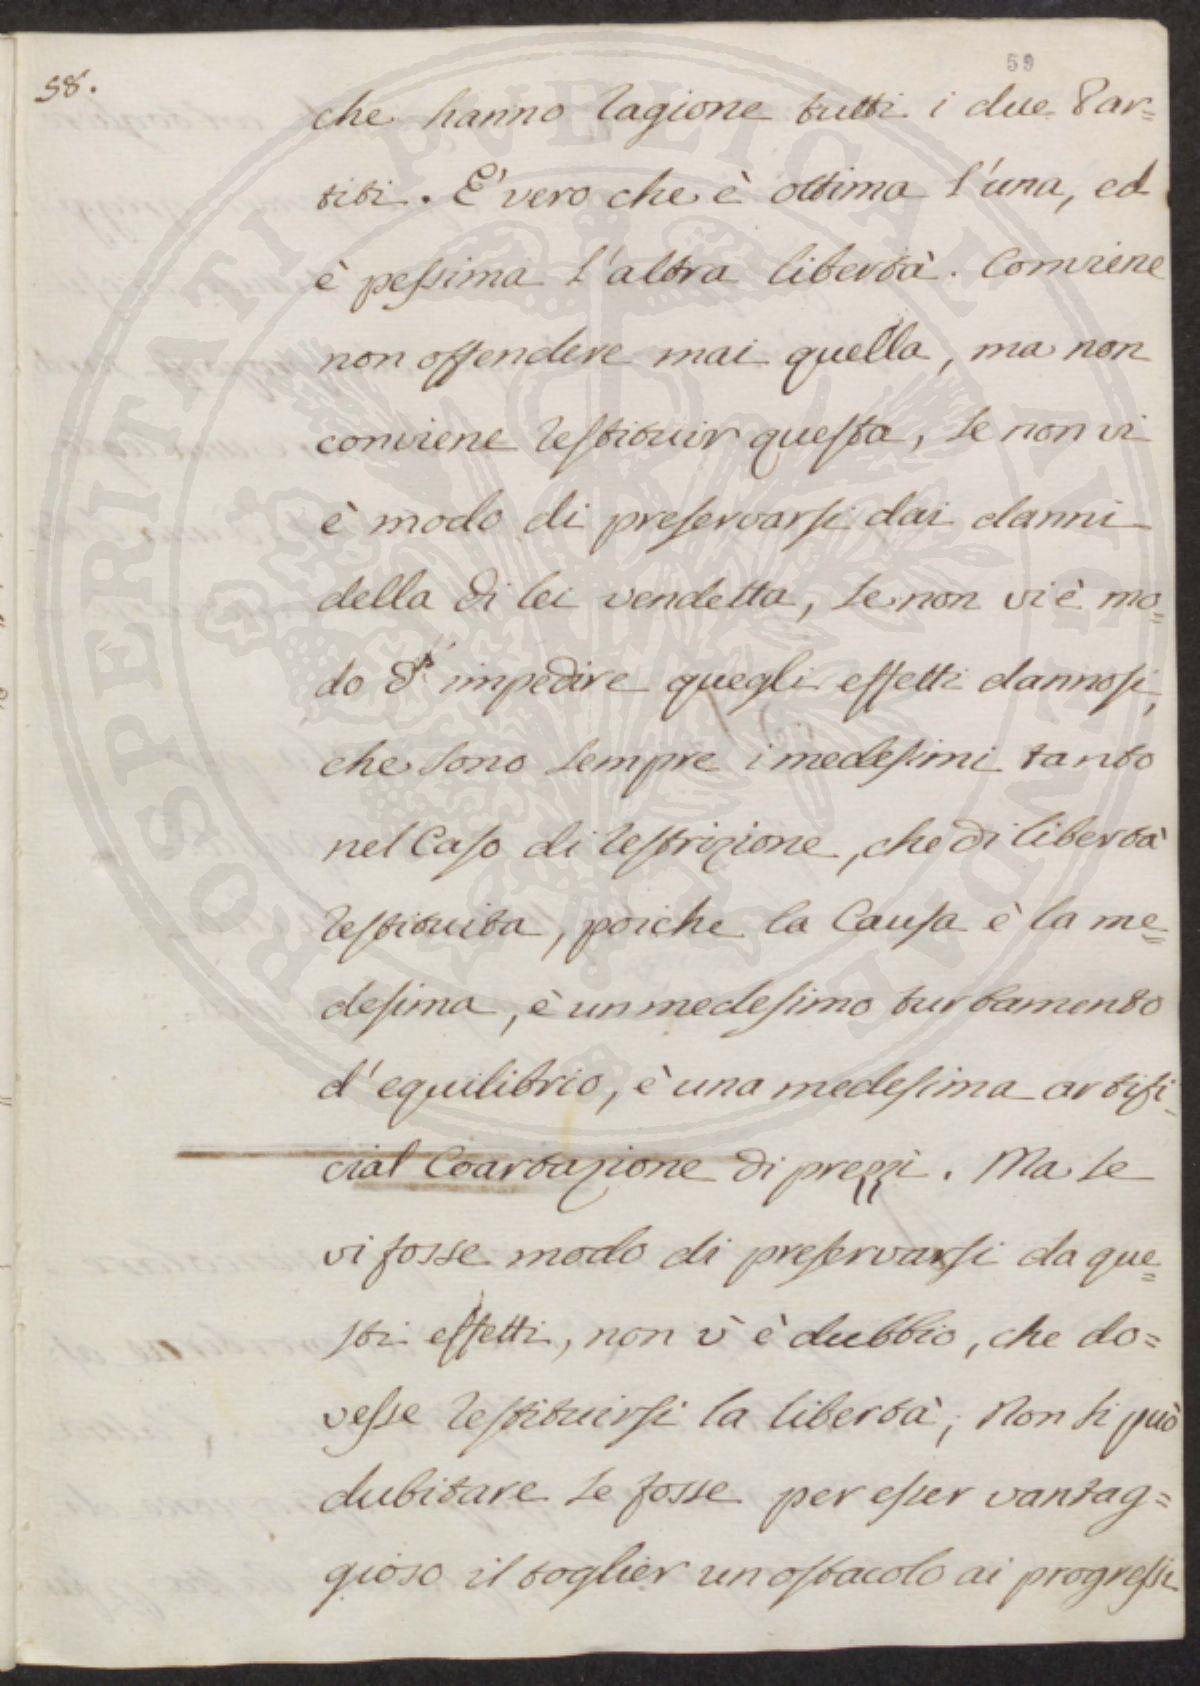 59
58.
che hanno ragione tutti i due Par=
titi. E' vero che è ottima l'una, ed
è pessima l'altra libertà. Conviene
non offendere mai quella, ma non
conviene restituir questa, se non vi
è modo di preservarsi dai danni
della di lei vendetta, se non vi è mo=
do d' impedire quegli effetti dannosi,
che sono sempre i medesimi tanto
nel Caso di restrizione, che di libertà
restituita, poiche la Causa è la me=
desima, è un medesimo turbamento
d'equilibrio, è una medesima artifi=
cial Coartazione di prezzi. Ma se
vi fosse modo di preservarsi da que=
sti effetti, non v' è dubbio, che do=
vesse restituirsi la libertà; Non si può
dubitare se fosse per esser vantag=
gioso il toglier un ostacolo ai progressi
PROSPERITATI PVBLICAE AVGENDAE